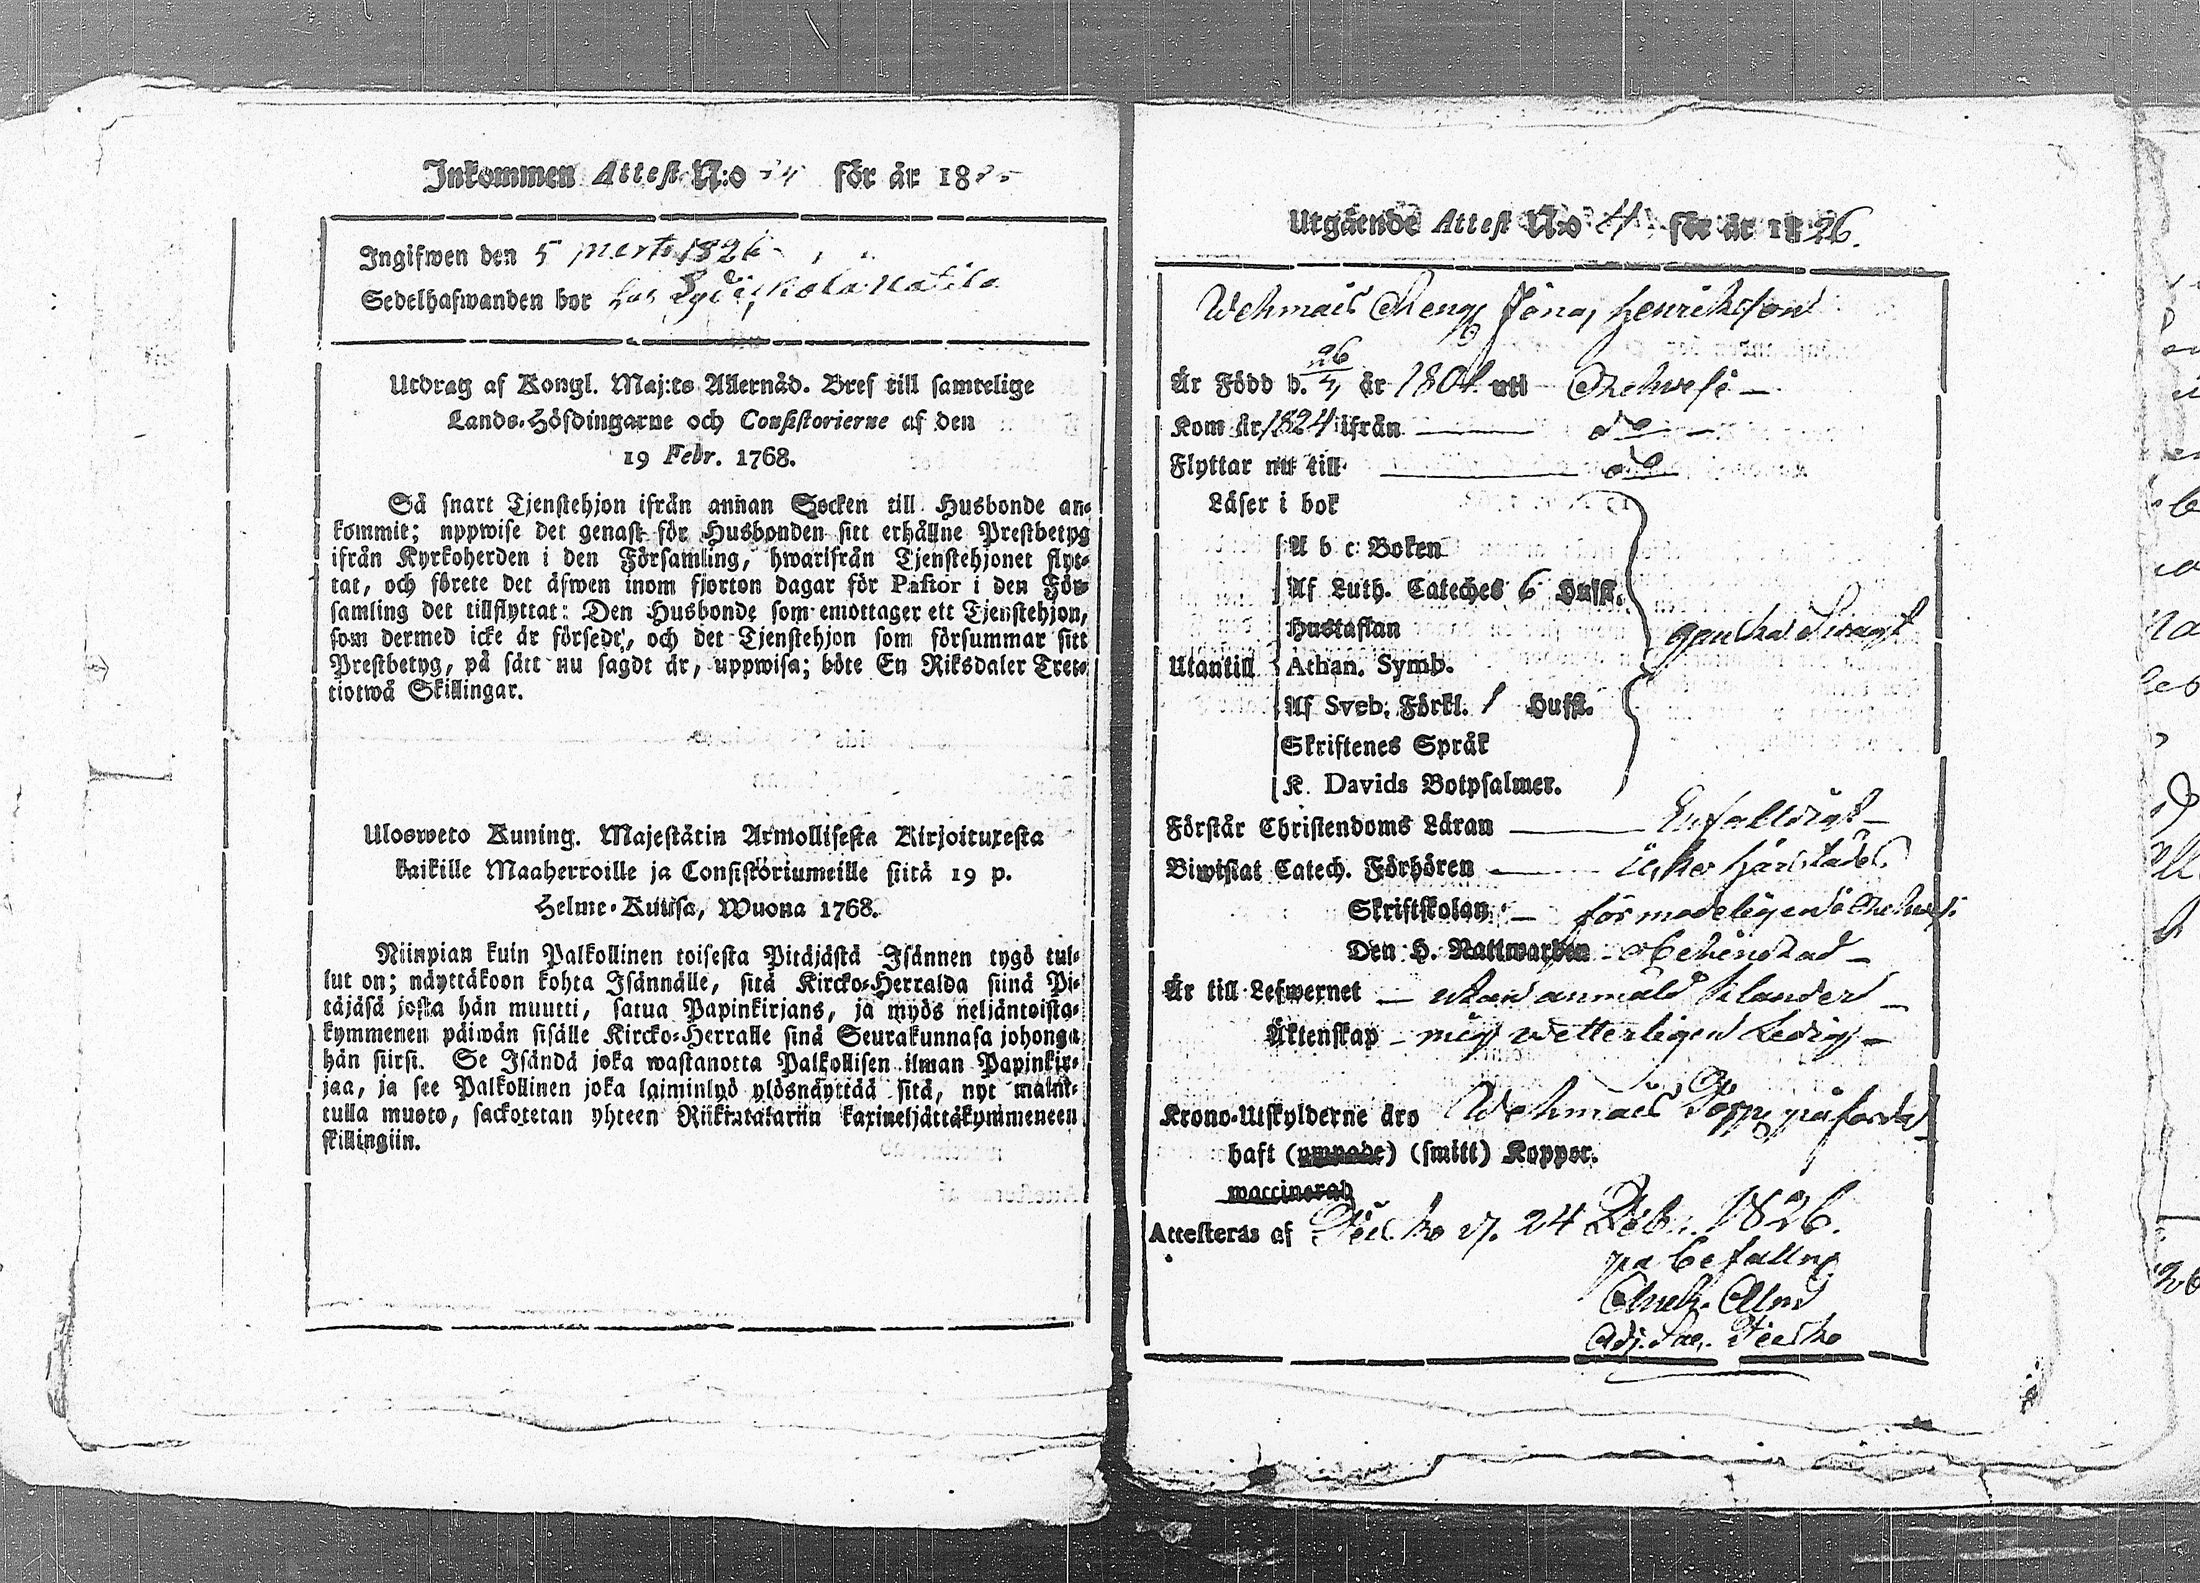 Inkommen Attest N:o 24 för är 18
Ingifwen den 5 Marts 1826
Sedelhafwanden bor hos
Utdrag af Kongl. Maj:ts Allernåd. Bref till samtelige
Lands-Höfdingarne och Consistorierne af den
19 Febr. 1768.
Så snart Tjenstehjon ifrån annan Socken till Husbonde an-
kommit; uppwise det genast för Husbonden sitt erhållne Prestbetyg
ifrån Kyrkoherden i den Församling, hwarifrån Tjenstehjonet flyt-
tat, och förete det äfwen inom fjorton dagar för Pastor i den För-
samling det tillflyttat: Den Husbonde som emottager ett Tjenstehjon,
som dermed icke är försedt, och det Tjenstehjon som försummar sitt
Prestbetyg, på sätt nu sagdt är, uppwisa; böte En Riksdaler Tret-
tiotwå Skillingar.
Ulosweto Kuning. Majestätin Armollisesta Kirjoituxesta
kaikille Maaherroille ja Consistoriumeille siitä 19 p.
Helme-Kuusa, Wuona 1768.
Niinpian kuin Palkollinen toisesta Pitäjästä Isännen tygö tul-
lut on; näyttäkoon kohta Isännälle, sitä Kircko-Herralda siinä Pi-
täjäsä josta hän muutti, satua Papinkirjans, ja myös neljäntoista-
kymmenen päiwän sisälle Kircko-Herralle sinä Seurakunnasa johonga
hän siirsi. Se Isändä joka wastanotta Palkollisen ilman Papinkir-
jaa, ja see Palkollinen joka laiminlyö ylösnäyttää sitä, nyt mainit-
tulla muoto, sackotetan yhteen Riikintalariin kaxineljättäkymmeneen
skillingiin.
Utgående Attest N:o 4 för är 1826.
Wehmais Dreng Jonas Henriksson
Är Född d. 26/4 år 1804 uti
Kom år 1824 ifrån do
Flyttar nu till do
Läser i bok
A b c Boken
Af Luth. Cateches 6 Hufst.
Hustaflan
Utantill Athan. Symb.
Af Sveb. Förkl. 1 Hufst.
Skriftenes Språk
K. Davids Botpsalmer.
ganska swagt
Förstår Christendoms Läran Enfalldigt
Biwistat Catech. Förhören
Skriftskolan förmodeligen i
Den H. Nattwarden obehindrad
Är till Lefwernet utan anmäld klander
Äktenskap mig wetterligen Ledig
Krono-Utskylderne äro Wehmais påförde
haft (ympade) (smitt) Koppor.
waccinerad
Attesteras af d. 24 1826.
på befallning
Adj. Sac.